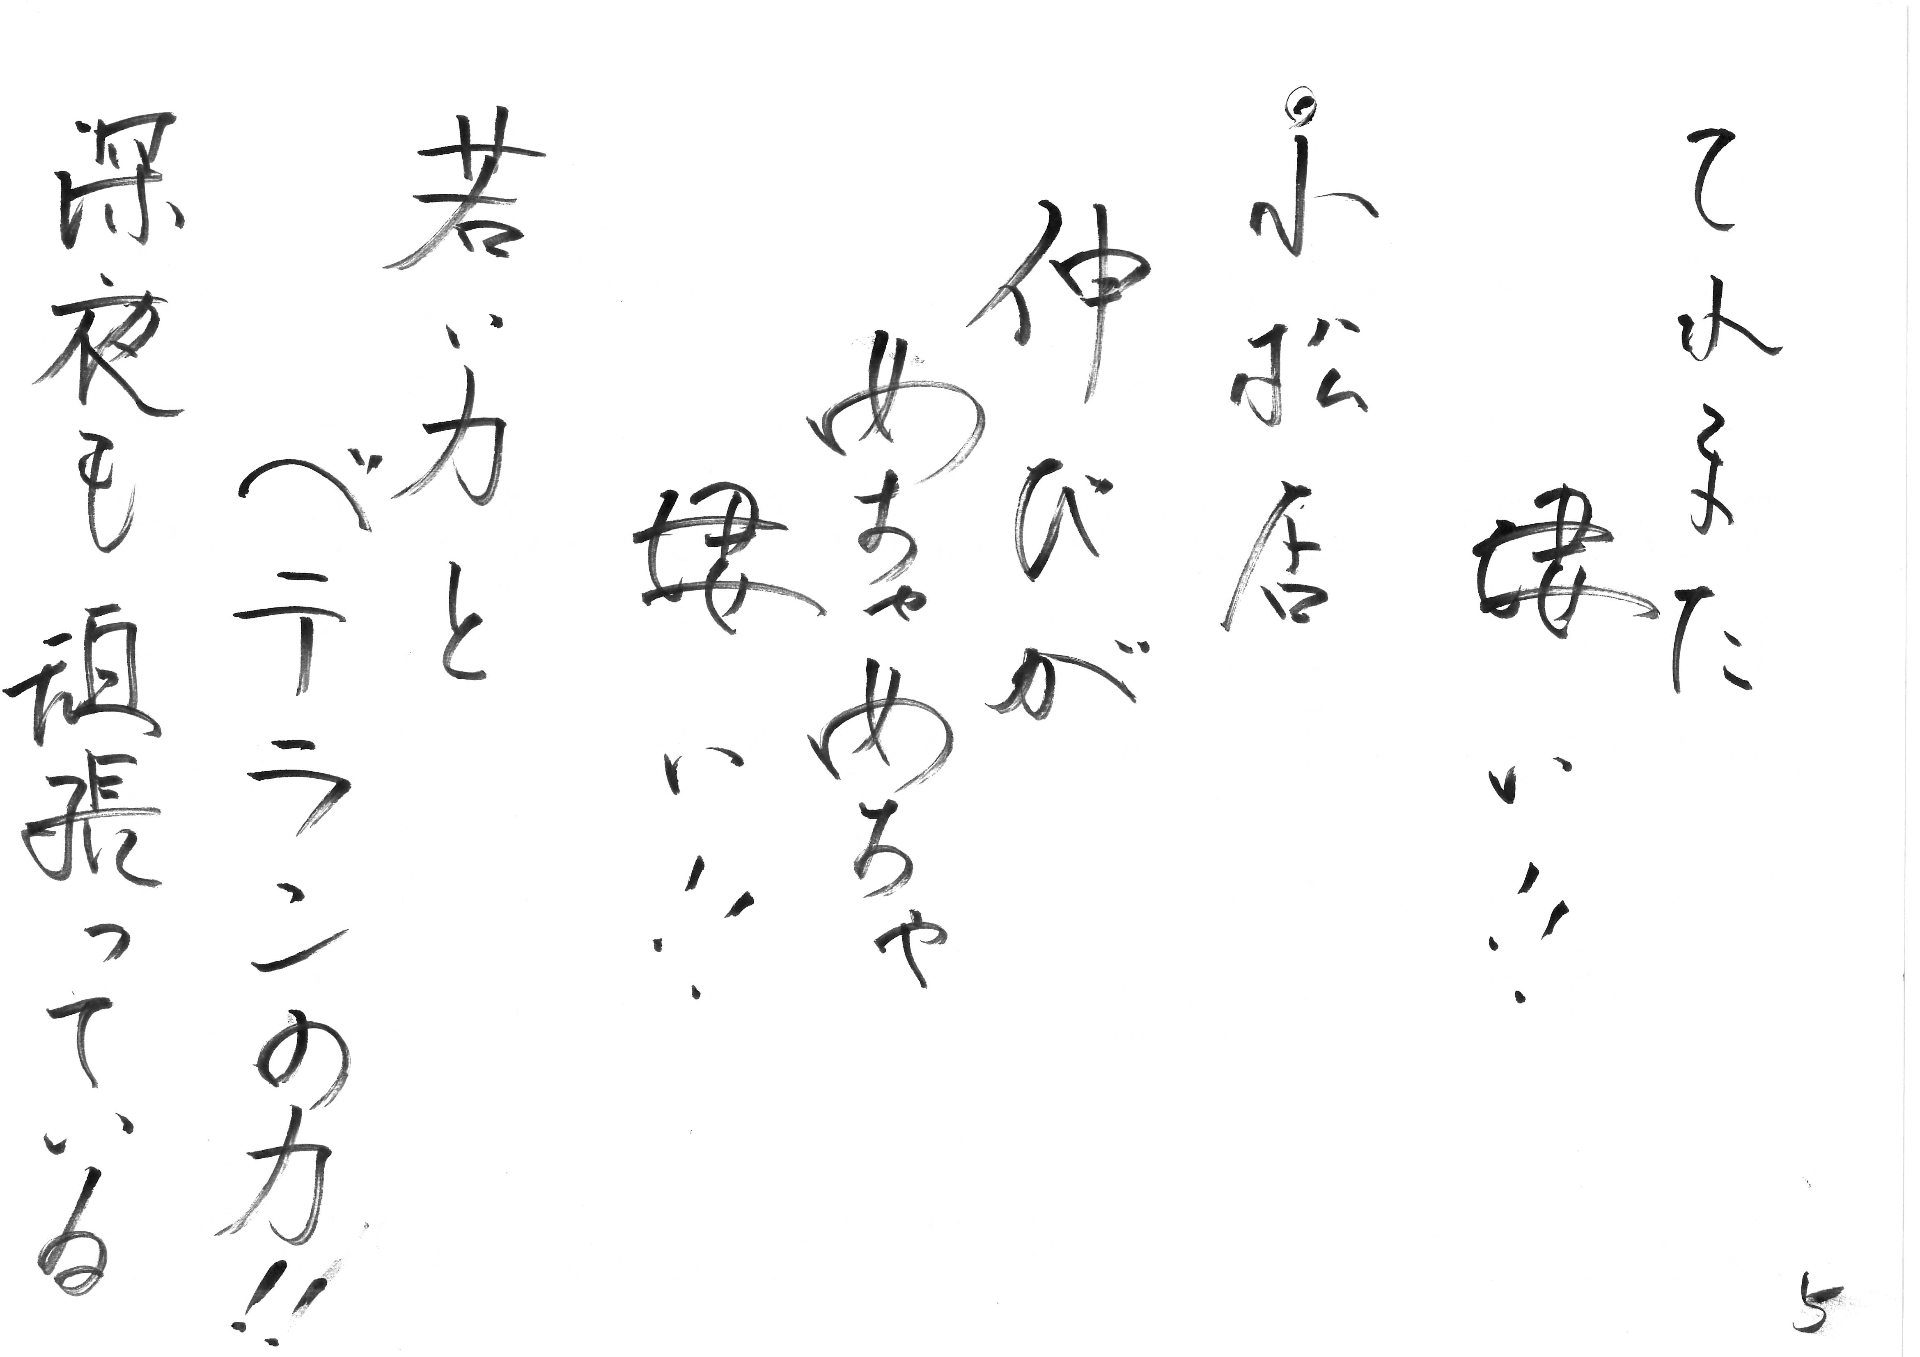 これまた
凄い!!
◎小松店
伸びが
めちゃめちゃ
凄い!!
若い力と
ベテランの力!!
深夜も頑張っている
5